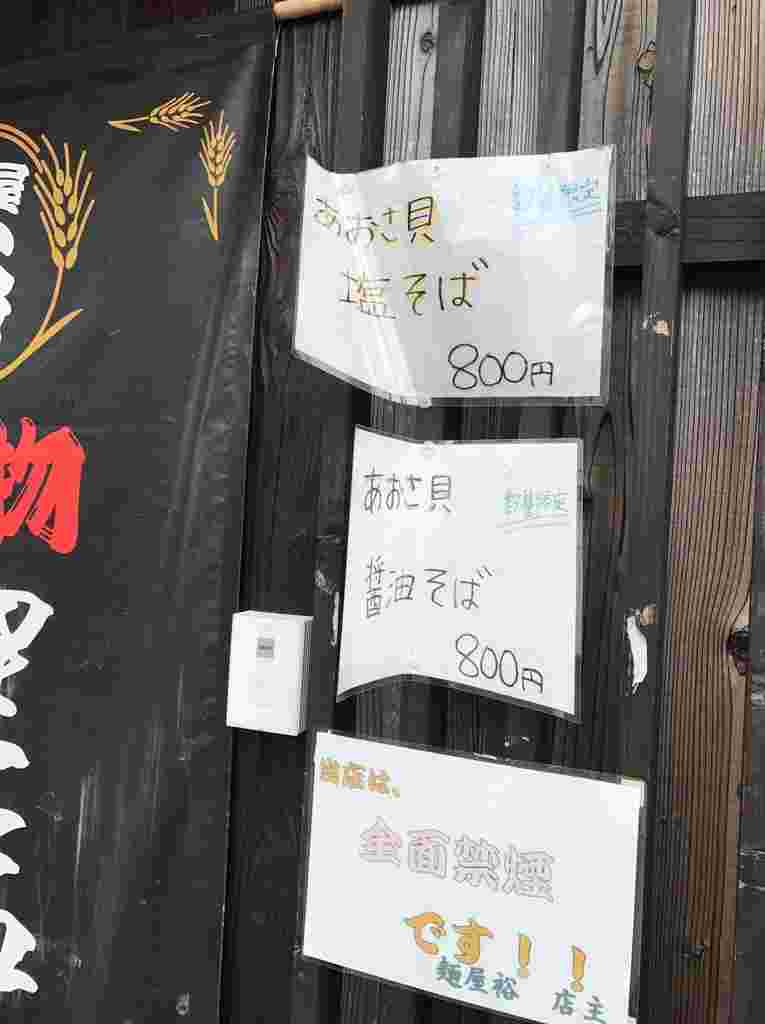 あおさ貝
数量限定
塩そば
800円
あおさ貝
数量限定
醤油そば
800円
当店は、
全面禁煙
です！！
麺屋裕 店主
物